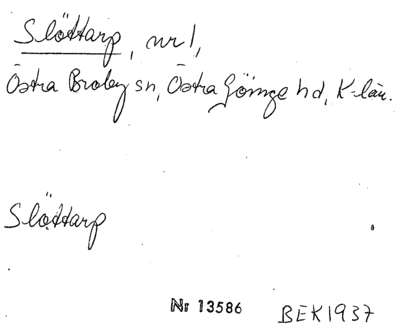 Slöttarp, nr 1,
Östra Broby sn, Östra Göinge hd, K-län.
Slöttarp
Nr 13586 BEK1937